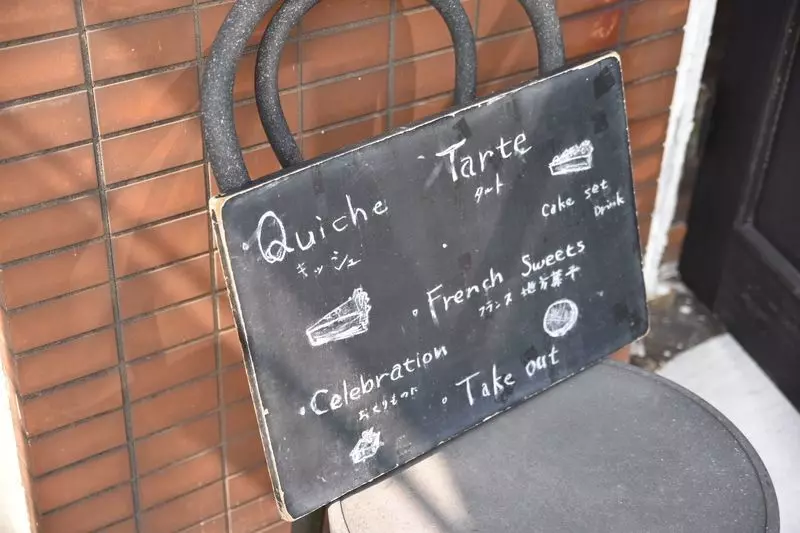 Quiche
キッシュ
Tarte
タルト
Cake set
Drink
French Sweets
フランス 地方菓子
Celebration
おくりもの
Take out